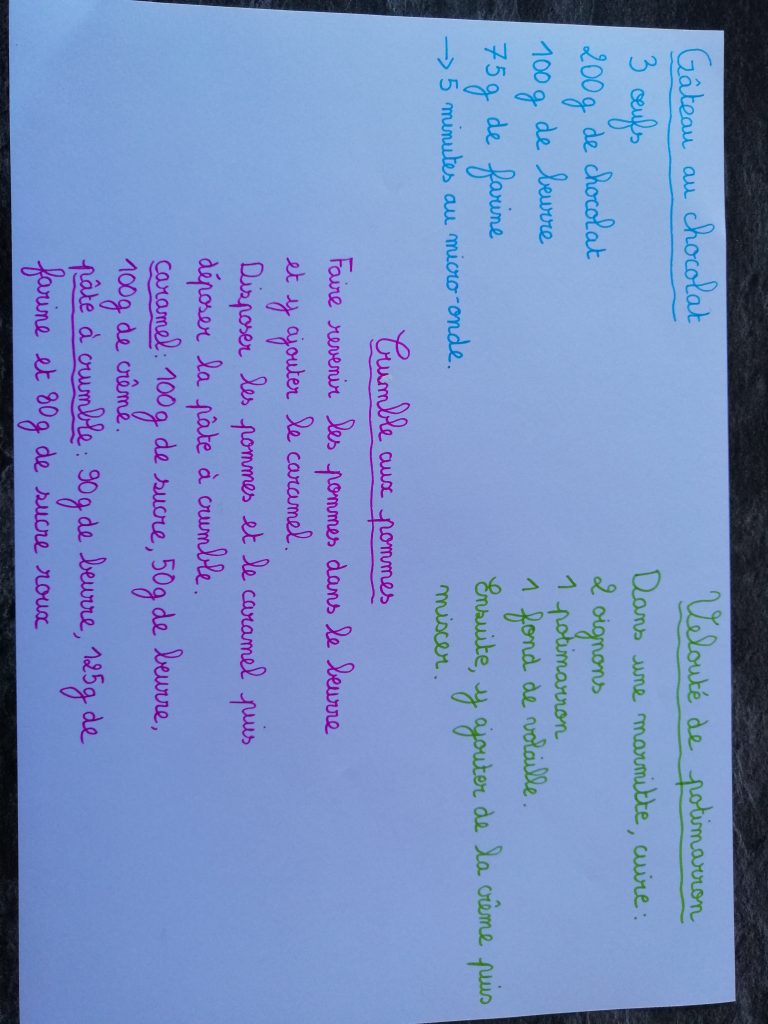 Gâteau au chocolat
3 œufs
200g de chocolat
100g de beurre
75g de farine
→ 5 minutes au micro-onde.
Velouté de potimarron
Dans une marmitte, cuire :
2 oignons
1 potimarron
1 fond de volaille.
Ensuite, y ajouter de la crème puis
mixer.
Crumble aux pommes
Faire revenir les pommes dans le beurre
et y ajouter le caramel.
Disposer les pommes et le caramel puis
déposer la pâte à crumble.
caramel : 100g de sucre, 50g de beurre,
100g de crème.
pâte à crumble : 90g de beurre, 125g de
farine et 80g de sucre roux